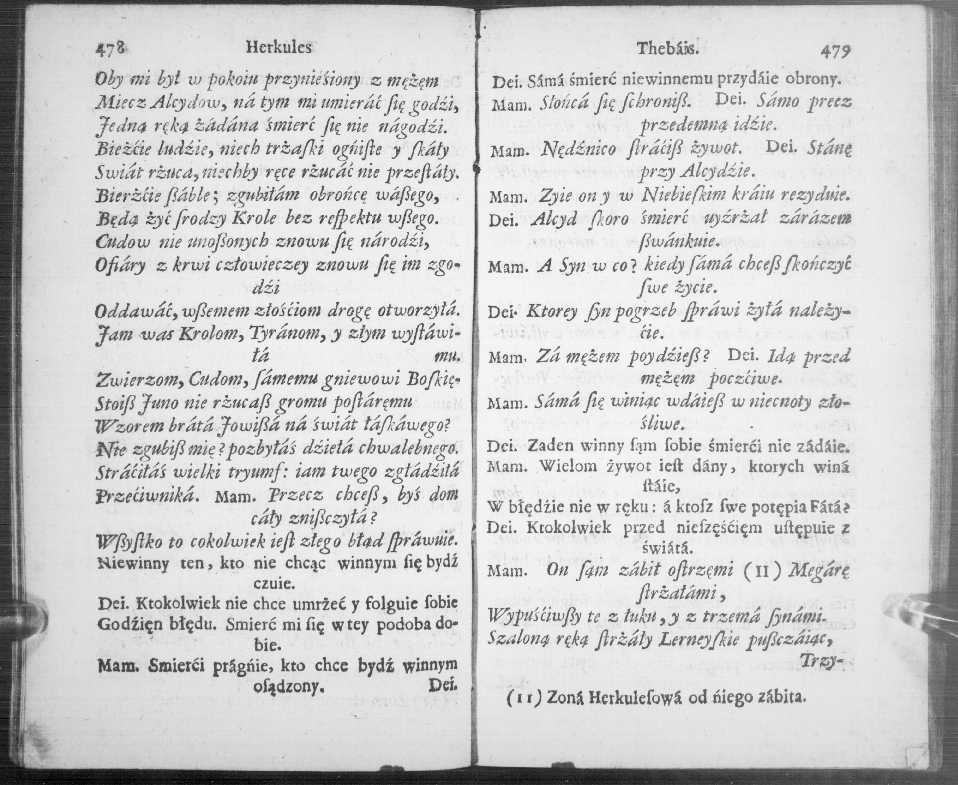 478 Herkules
Oby mi był w pokoiu przynieśiony z mężęm
Miecz Alcydow, ná tym mi umieráć ſię godźi,
Jedną ręką żádána śmierć ſię nie nágodźi.
Bieżćie ludźie, niech trżaſki ogńiſte y ſkáły
Swiát rżuca, niechby ręce rżucáć nie przeſtáły.
Bierżćie ſzáble; zgubiłám obrońcę wáſzego,
Będą żyć ſrodzy Krole bez reſpektu wſzego.
Cudow nie unoſzonych znowu ſię národźi,
Ofiáry z krwi człowieczey znowu ſię im zgo-
dźi
Oddawáć, wſzemem złośćiom drogę otworzyłá.
Jam was Krolom, Tyránom, y złym wyſtáwi-
łá mu.
Zwierzom, Cudom, ſámemu gniewowi Boſkię-
Stoiſz Juno nie rżucaſz gromu poſtáręmu
Wzorem brátá Jowiſzá ná świát łáſkáwego?
Nie zgubiſz mię? pozbyłáś dźiełá chwalebnego.
Stráćiłáś wielki tryumf: iam twego zgłádźiłá
Przećiwniká. Mam. Przecz chceſz, byś dom
cáły zniſzczyłá?
Wſzyſtko to cokolwiek ieſt złego błąd ſpráwuie.
Niewinny ten, kto nie chcąc winnym ſię bydź
czuie.
Dei. Ktokolwiek nie chce umrżeć y folguie ſobie
Godźięn błędu. Smierć mi ſię w tey podoba do-
bie.
Mam. Smierći prágńie, kto chce bydź winnym
oſądzony. Dei.
Thebáis. 479
Dei. Sámá śmierć niewinnemu przydáie obrony.
Mam. Słońcá ſię ſchroniſz. Dei. Sámo precz
przedemną idźie.
Mam. Nędźnico ſtráćiſz żywot. Dei. Stánę
przy Alcydźie.
Mam. Zyie on y w Niebieſkim kráiu rezyduie.
Dei. Alcyd ſkoro śmierć uyżrżał zárázem
ſzwánkuie.
Mam. A Syn w co? kiedy ſámá chceſz ſkończyć
ſwe życie.
Dei. Ktorey ſyn pogrzeb ſpráwi żyłá należy-
ćie.
Mam. Zá mężem poydźieſz? Dei. Idą przed
mężęm poczćiwe.
Mam. Sámá ſię winiąc wdáieſz w niecnoty zło-
śliwe.
Dei. Zaden winny ſąm ſobie śmierći nie zádáie.
Mam. Wielom żywot ieſt dány, ktorych winá
ſtáie,
W błędźie nie w ręku: á ktoſz ſwe potępia Fátá?
Dei. Ktokolwiek przed nieſzęśćięm uſtępuie z
świátá.
Mam. On ſąm zábił oſtrzęmi (11) Megárę
ſtrżałámi,
Wypuśćiwſzy te z łuku, y z trzemá ſynámi.
Szaloną ręką ſtrżáły Lerneyſkie puſzczáiąc,
Trzy-
(11) Zoná Herkuleſowá od ńiego zábita.